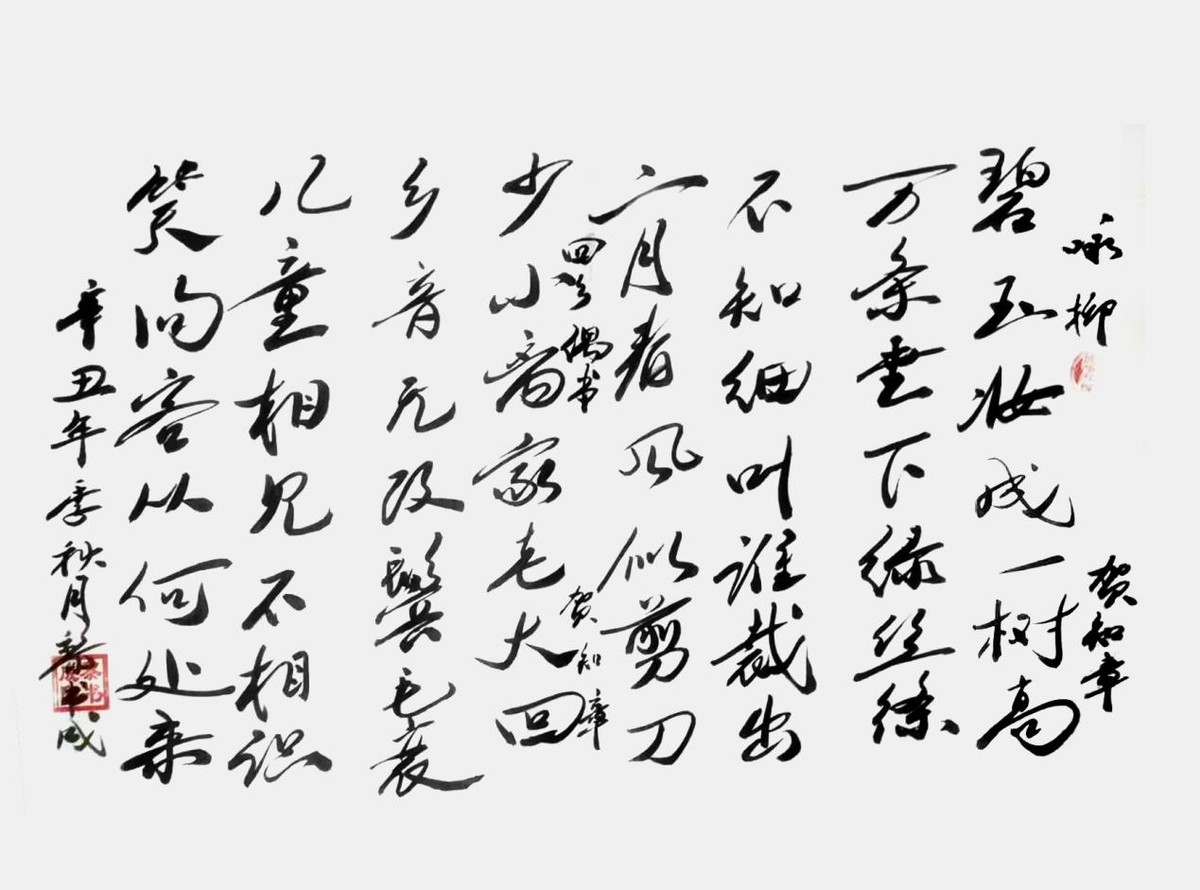 咏柳 贺知章
碧玉妆成一树高
万条垂下绿丝绦
不知细叶谁裁出
二月春风似剪刀
回乡偶书 贺知章
少小离家老大回
乡音无改鬓毛衰
儿童相见不相识
笑问客从何处来
辛丑年季秋月 书成